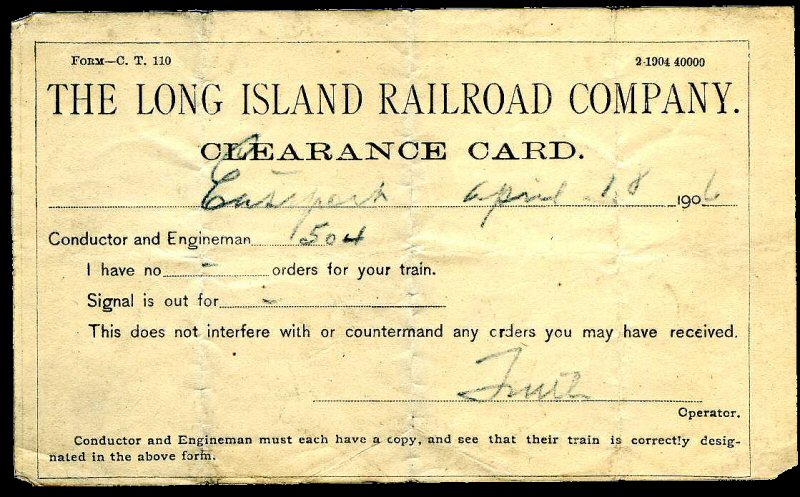 FORM—C. T. 110 2-1904 40000
THE LONG ISLAND RAILROAD COMPANY.
CLEARANCE CARD.
Eastport April 18 1906
Conductor and Engineman 504
I have no - orders for your train.
Signal is out for -
This does not interfere with or countermand any orders you may have received.
Operator.
Conductor and Engineman must each have a copy, and see that their train is correctly desig-
nated in the above form.